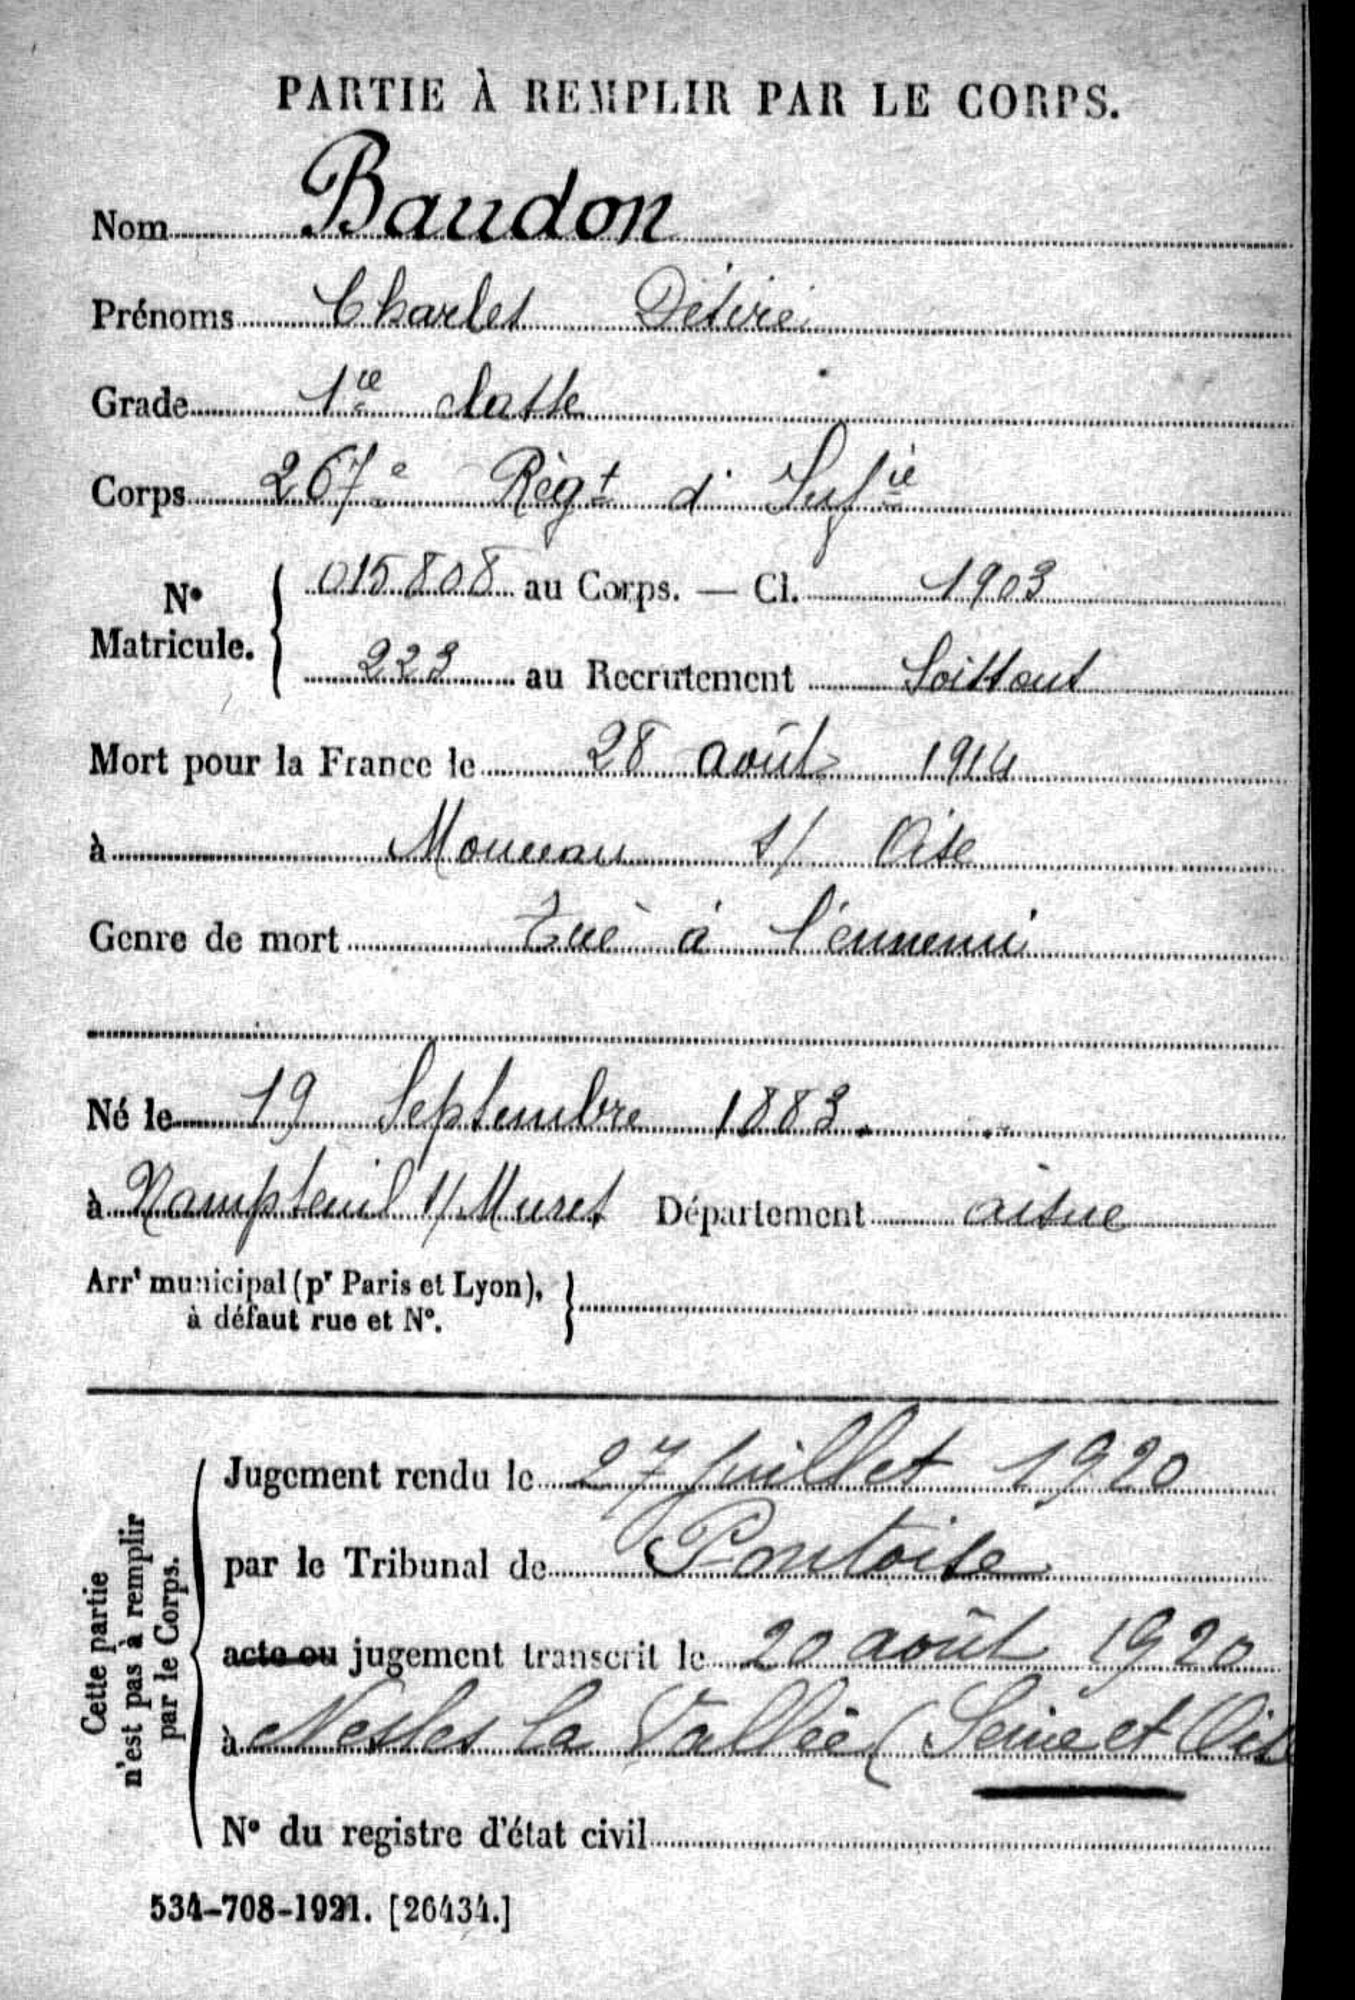 PARTIE À REMPLIR PAR LE CORPS.
Nom Baudon
Prénoms Charles Désiré
Grade 1re classe
Corps 267e Règt d' Infie
No Matricule. { 015808 au Corps. — Cl. 1903
223 au Recrutement Soissons
Mort pour la France le 28 août 1914
à s/ Oise
Genre de mort Tué à l'ennemi
Né le 19 Septembre 1883.
à Nampteuil s/ Muret Département aisne
Arrt municipal (pr Paris et Lyon), à défaut rue et No. }
Cette partie n'est pas à remplir par le Corps.
Jugement rendu le 27 Juillet 1920
par le Tribunal de Pontoise
acte ou jugement transcrit le 20 août 1920
à Nesles la Vallée (Seine et Oise
No du registre d'état civil
534-708-1921. [26434.]